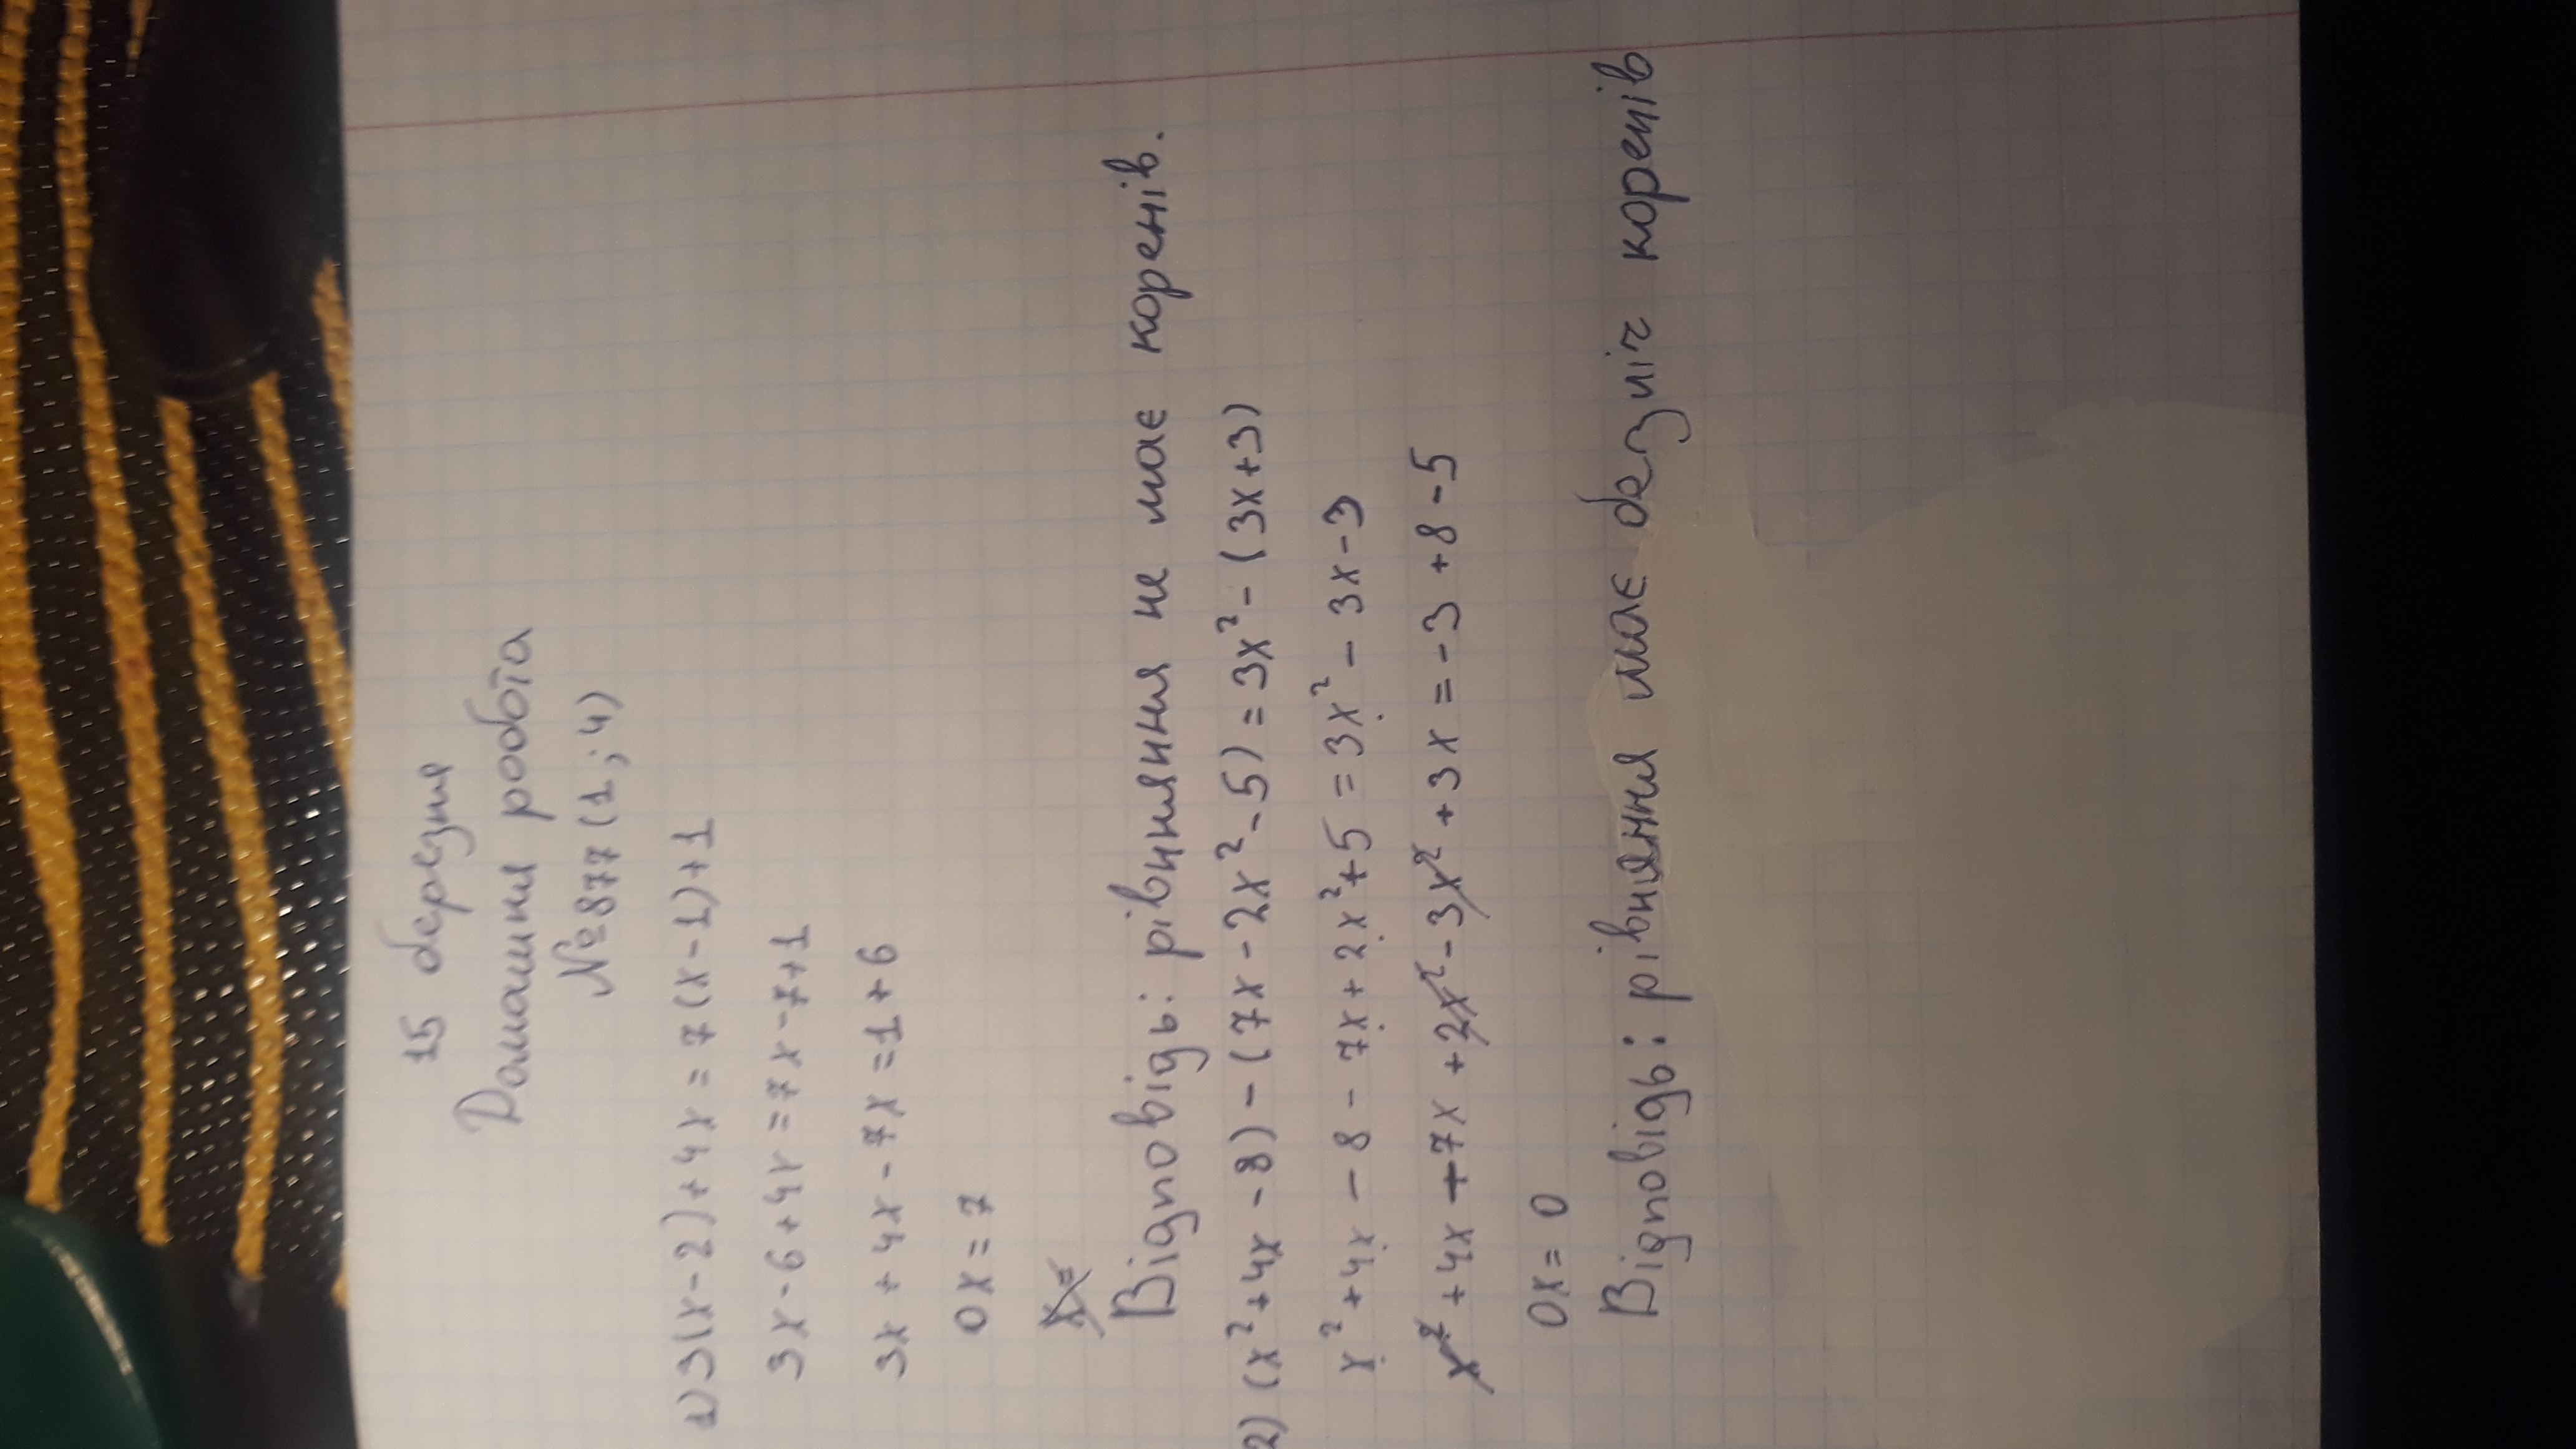 15 березня
Домашня робота
№877(1;4)
1) 3(x-2)+4x=7(x-1)+1
3x-6+4x=7x-7+1
3x+4x-7x=1+6
0x=7
x=
Відповідь: рівняння не має коренів.
2) (x²+4x-8)-(7x-2x²-5)=3x²-(3x+3)
x²+4x-8-7x+2x²+5=3x²-3x-3
x²+4x+7x+2x²-3x²+3x=-3+8-5
0x=0
Відповідь: рівняння має безліч коренів